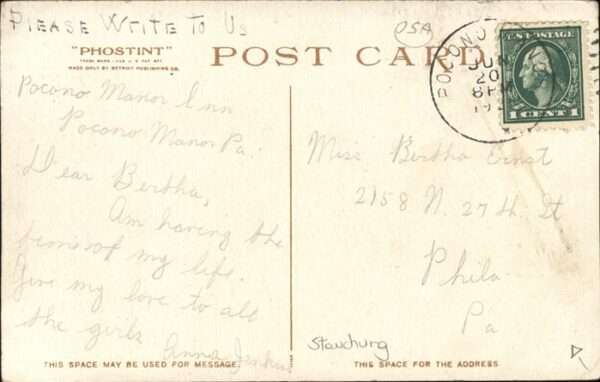 PLEASE WRITE TO US
PSA
"PHOSTINT"
TRADE MARK - REG. U. S. PAT. OFF.
MADE ONLY BY DETROIT PUBLISHING CO.
POST CARD
POCONO
JUN
20
8 P
19
U.S. POSTAGE
1 CENT 1
Pocono Manor Inn
Pocono Manor Pa.
Dear Bertha,
Am having the
time of my life.
Give my love to all
the girls
Anna
Miss Bertha Ernst
2158 N. 27 th. St
Phila
Pa
THIS SPACE MAY BE USED FOR MESSAGE.
THIS SPACE FOR THE ADDRESS.